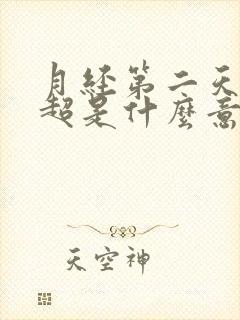 月經第二天
超是什麼意
天空神